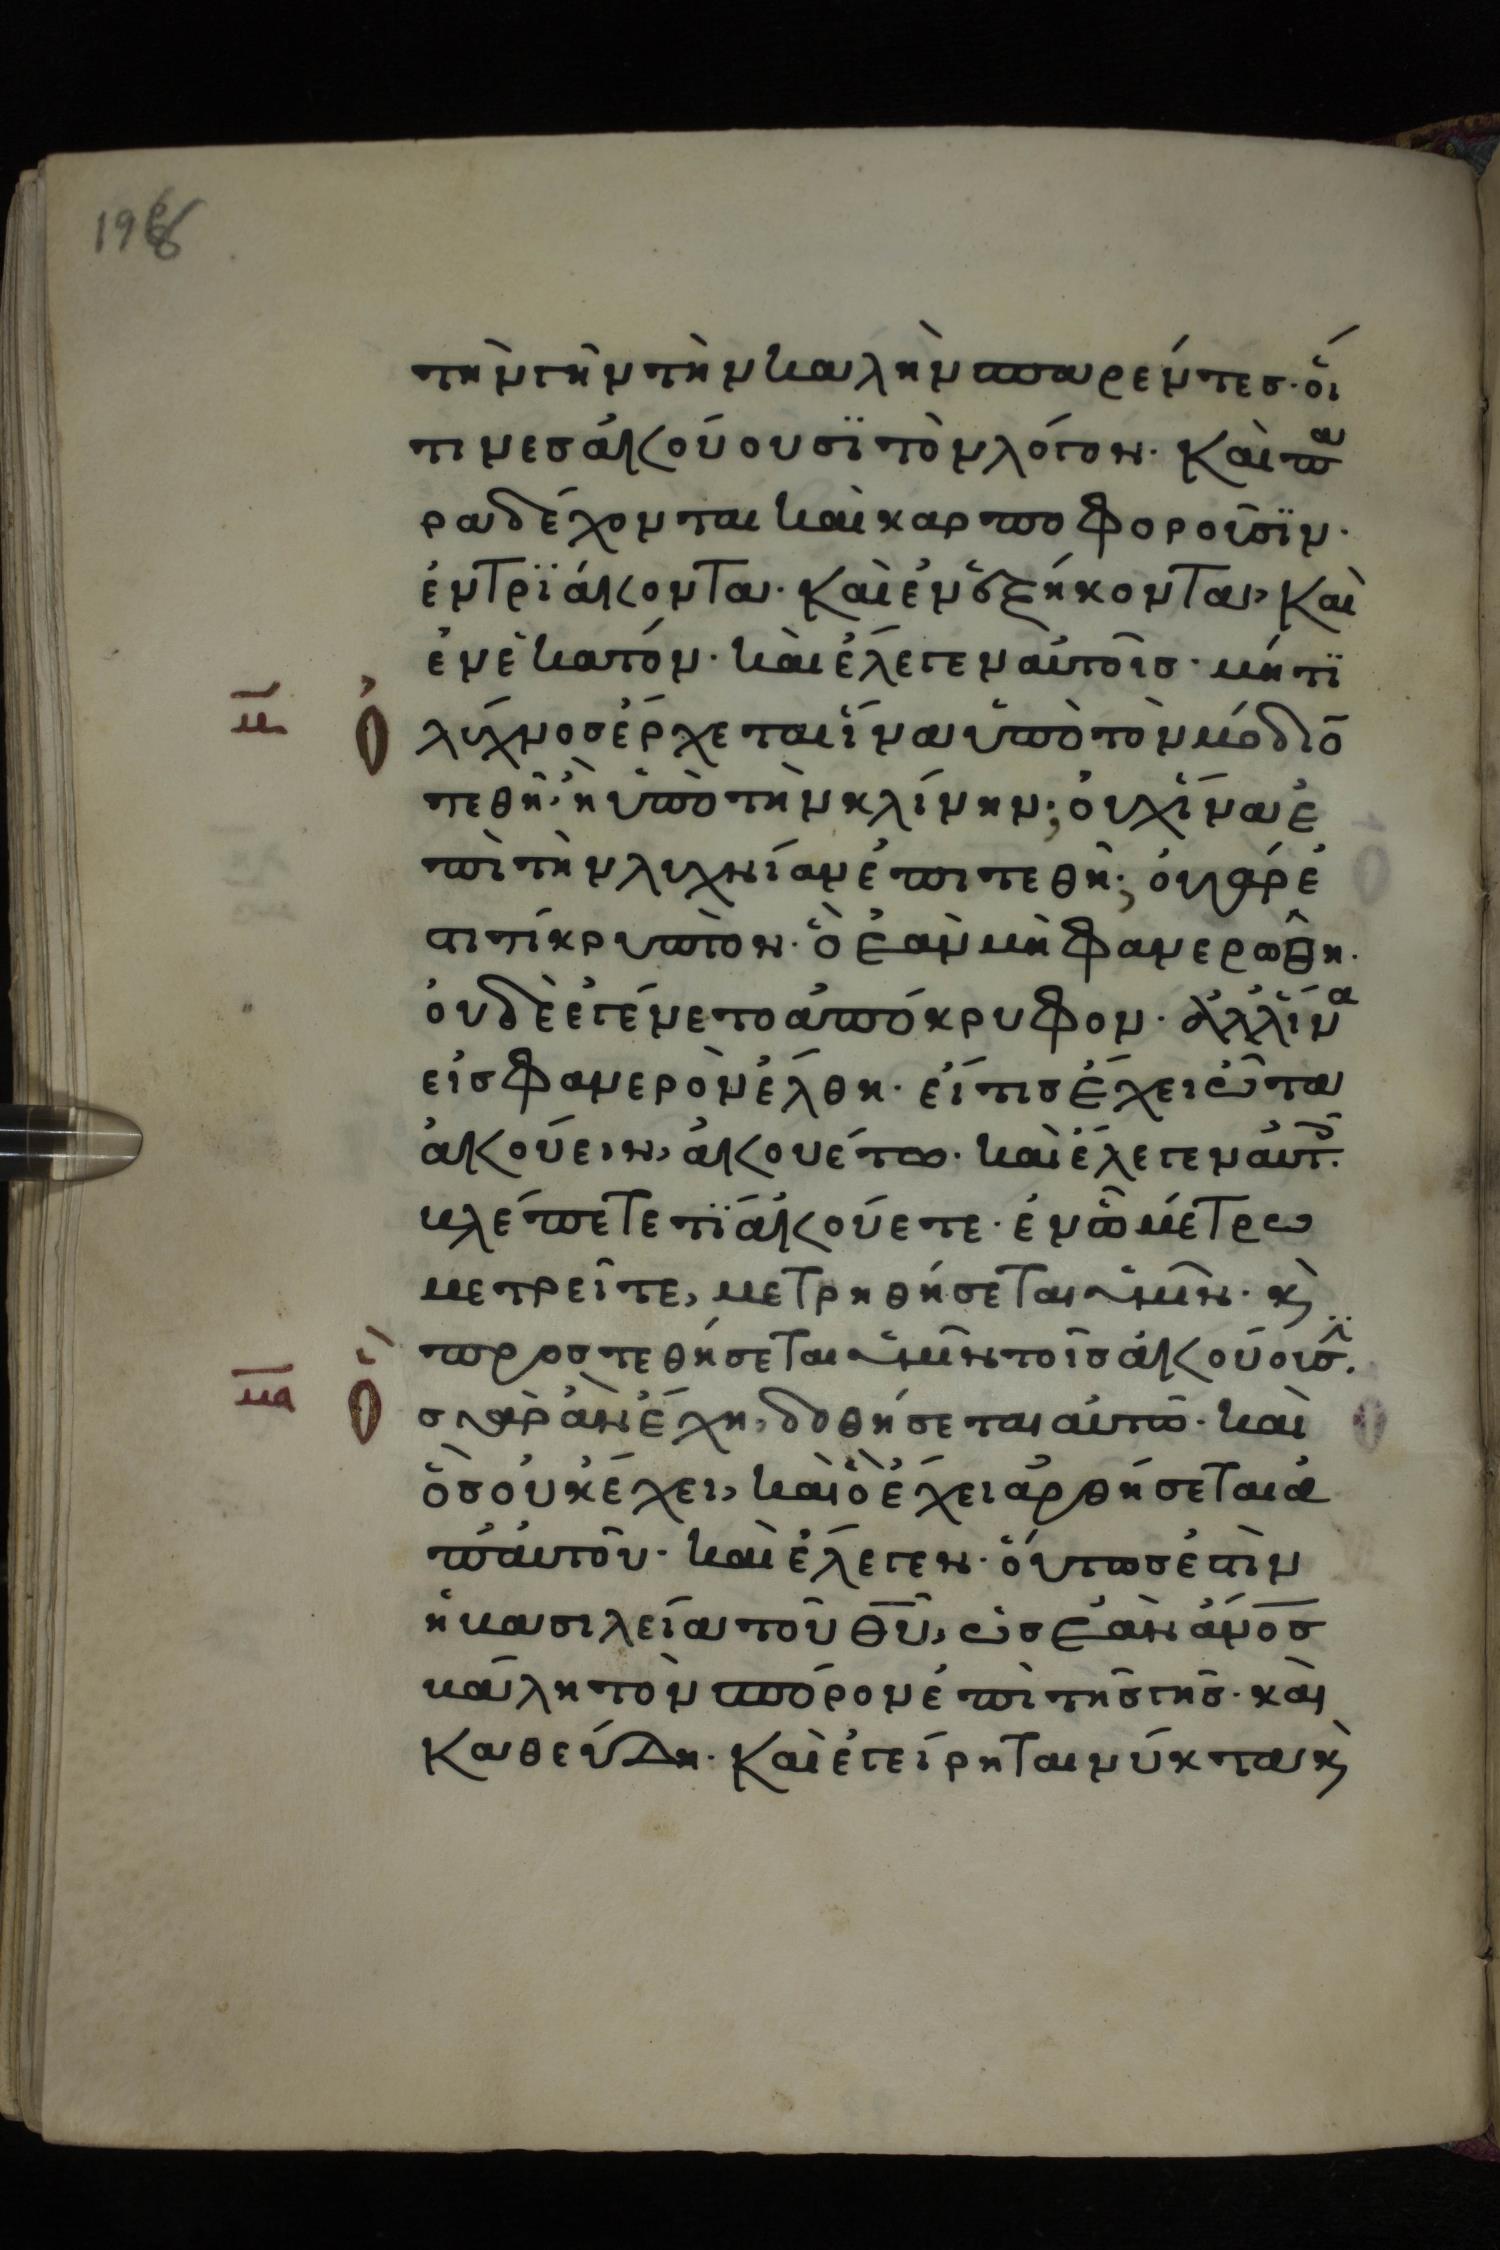 196
τὴν γῆν τὴν καλὴν σπαρέντες· οἵ
τινες ἀκούουσϊ τὸν λόγον· καὶ πα
ραδέχονται καὶ καρποφοροῦσϊν·
ἐν τρϊάκοντα· καὶ ἐν ἑξήκοντα, καὶ
ἐν ἑκατόν· καὶ ἔλεγεν αὐτοῖς· μήτϊ
μ ὁ λύχνος ἔρχεται ἵνα ὑπὸ τὸν μόδιο̄
τεθῆ, ἢ ὑπὸ τὴν κλίνην; οὐχ ἵνα ἐ
πὶ τὴν λυχνίαν ἐπιτεθῆ; οὐ γάρ ἐ
στί τι κρυπτὸν· ὃ ἐὰν μὴ φανερωθῆ·
οὐδὲ ἐγένετο ἀπόκρυφον· ἀλλ' ἵνα
εἰς φανερὸν ἔλθη· εἴ τις ἔχει ὦτα
ἀκούειν, ἀκουέτω· καὶ ἔλεγεν αὐτ·
βλέπετε τϊ ἀκούετε· ἐν ὧ μέτρω
μετρεῖτε, μετρηθήσεται ὑμῖν· κ
προστεθήσεται ὑμῖν τοῖς ἀκούουσ̈·
μα ὅ
ς γὰρ ἂν ἔχη, δοθήσεται αὐτῶ· καὶ
ὃς οὐκ ἔχει, καὶ ὃ ἔχει ἀρθήσεται ἀ
π' αὐτοῦ· καὶ ἔλεγεν· οὕτως ἐστὶν
ἡ βασιλεία τοῦ θ̅υ̅, ὡς ἐὰν ἄν̅ο̅ς̅
βάλη τὸν σπόρον ἐπὶ τῆς γῆς· καὶ
καθεύδη· καὶ ἐγείρηται νύκτα κ